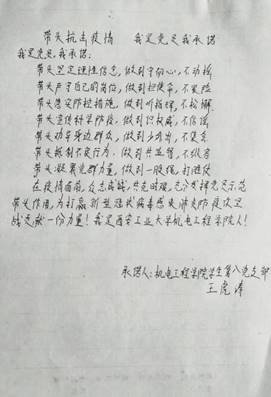 带头抗击疫情 我是党员我承诺
我是党员,我承诺:
带头坚定理性信念,做到守初心,不动摇
带头严守自己的岗位,做到担使命,不畏险
带头落实防控措施,做到听指挥,不松懈
带头宣传科学防疫,做到识权威,不信谣
带头劝导身边群众,做到少外出,不聚会
带头抵制不良行为,做到共监督,不纵容
带头凝聚党群力量,做到一股绳,打胜仗
在疫情面前,众志成城,共克时艰,充分发挥党员示范
带头作用,为打赢新型冠状病毒感染肺炎防疫攻坚
战贡献一份力量!我是西安工业大学机电工程学院人!
承诺人:机电工程学院学生第八党支部
王虎